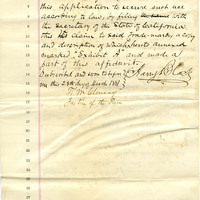 this application to secure such use
according to law, by filing with
the Secretary of the State of California
this his claim to said Trade-mark, a copy
and description of which hereto annexed
marked "Exhibit A" and made a
part of this affidavit.
Subscribed and sworn to before me
on this 28th day of March 1881
Harry B. Cook